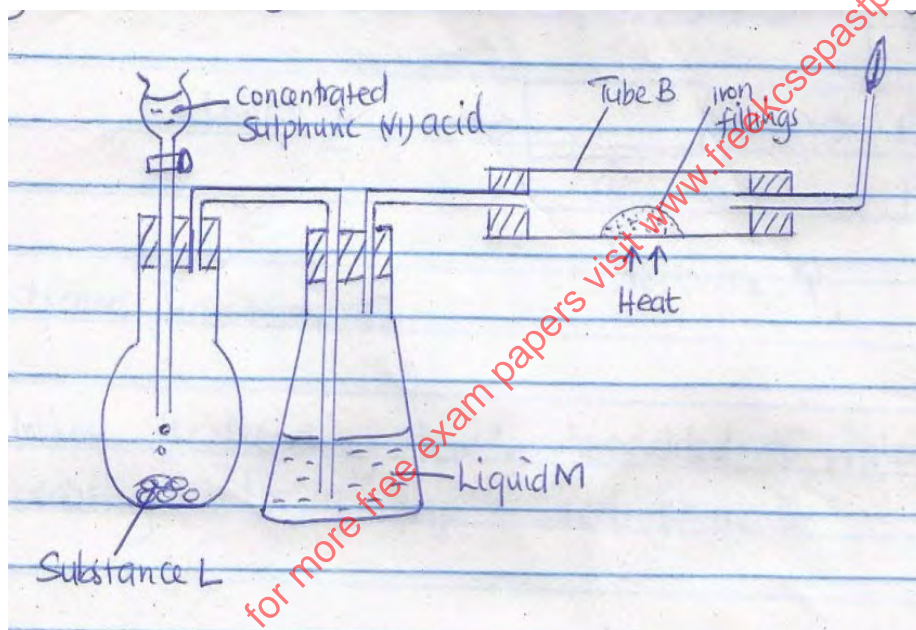 concentrated
Sulphuric (VI) acid
Tube B
iron
filings
Heat
Liquid M
Substance L
for more free exam papers visit www.freekcsepastp